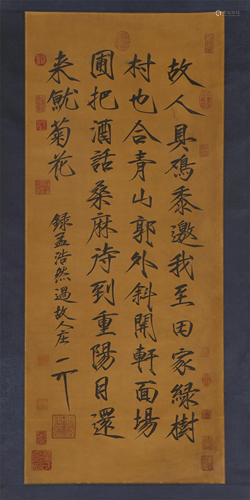 故人具鸡黍邀我至田家綠樹
村也合青山郭外斜開軒面場
圃把酒話桑麻待到重陽日還
来就菊花
録孟浩然過故人庄